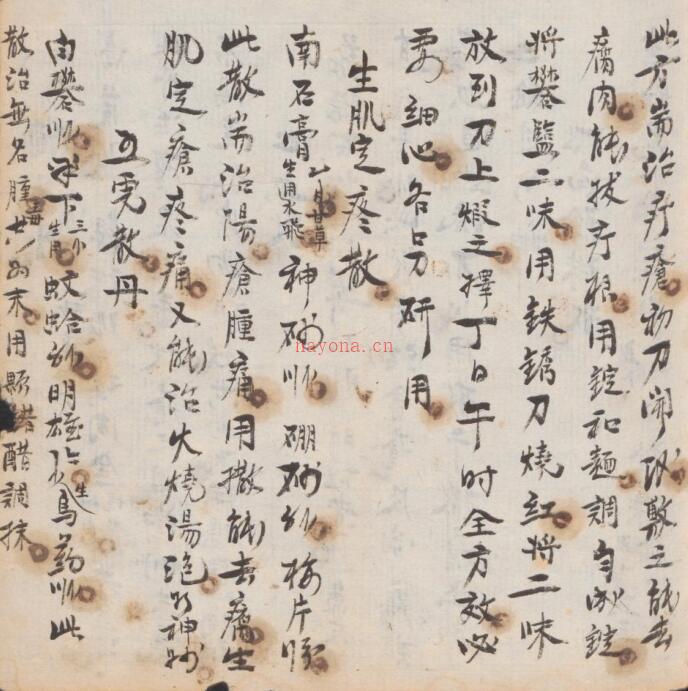 此方耑治疔瘡初刀開以敷之能去
腐肉能拔疔根用錠和麵調自成錠
將礬監二味用鉄銹刀燒紅將二味
放到刀上煆之擇丁日午时全方效必
要細心各口乃研用
生肌定疼散
南石膏生用水飛 甘草 神砂 硼砂 梅片
此散耑治陽瘡腫痛用撒能去腐生
肌定瘡疼痛又能治火燒湯泡乃神妙
五虎散丹
白礬 下 生用 蚊蛤 明雄 生 烏药 此
散治無名腫毒 共为末用 醋調抹
nayona.cn